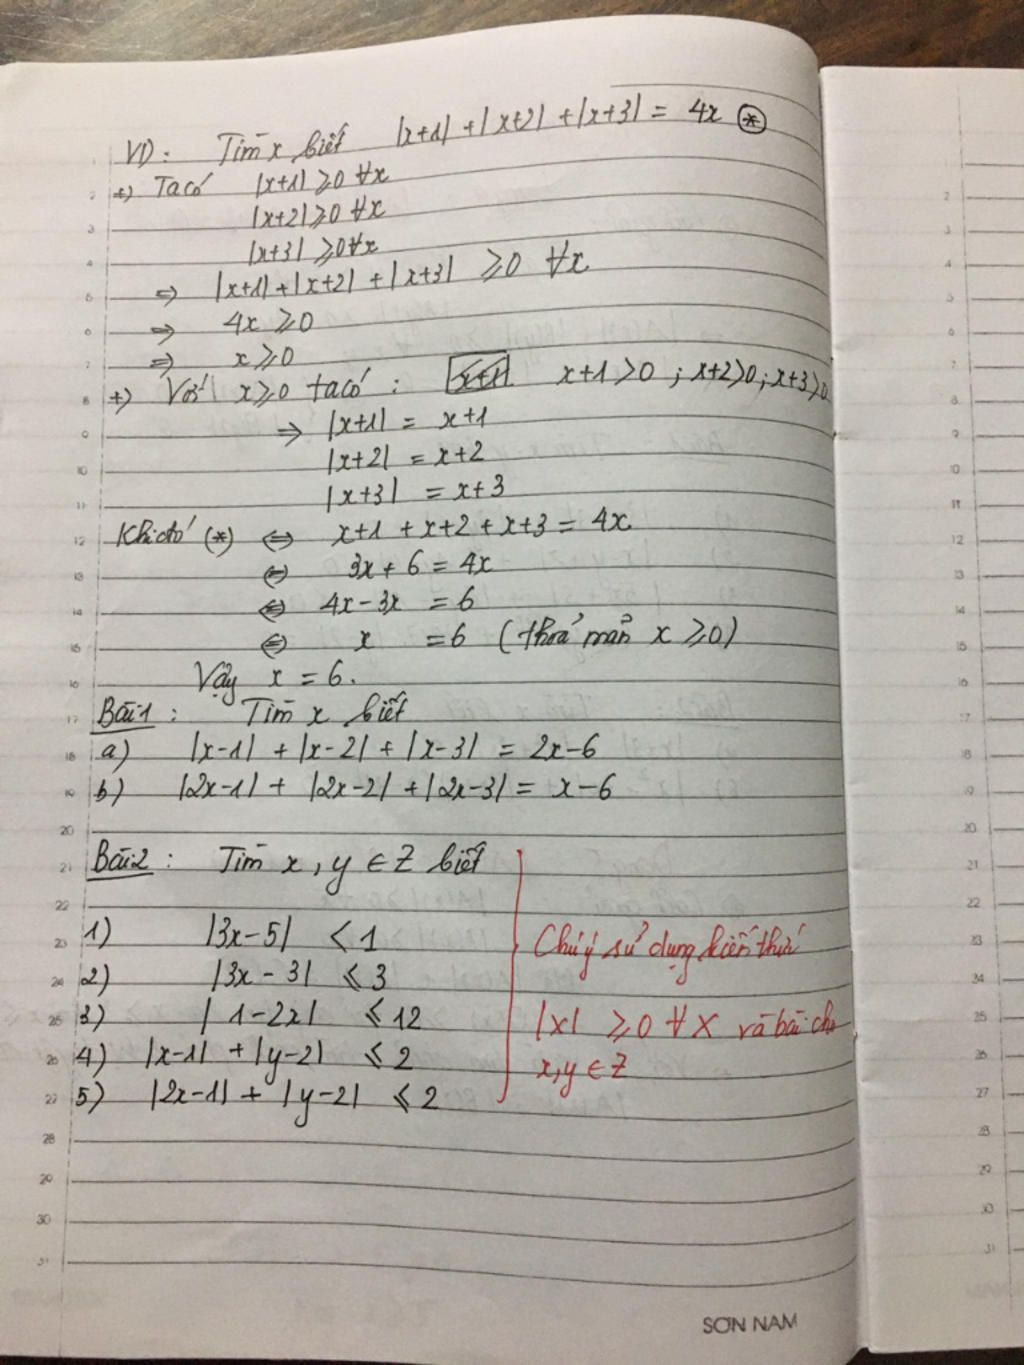 VD: Tìm x biết |x+1| + |x+2| + |x+3| = 4x (*)
+) Ta có |x+1| ⩾ 0 ∀x
|x+2| ⩾ 0 ∀x
|x+3| ⩾ 0 ∀x
⇒ |x+1| + |x+2| + |x+3| ⩾ 0 ∀x
⇒ 4x ⩾ 0
⇒ x ⩾ 0
+) Với x ⩾ 0 ta có : x+1 > 0 ; x+2 > 0 ; x+3 > 0
⇒ |x+1| = x+1
|x+2| = x+2
|x+3| = x+3
Khi đó (*) ⇔ x+1 + x+2 + x+3 = 4x
⇔ 3x + 6 = 4x
⇔ 4x - 3x = 6
⇔ x = 6 (thoả mãn x ⩾ 0)
Vậy x = 6.
Bài 1 : Tìm x biết
a) |x-1| + |x-2| + |x-3| = 2x-6
b) |2x-1| + |2x-2| + |2x-3| = x-6
Bài 2 : Tìm x, y ∈ Z biết
1) |3x-5| < 1
2) |3x-3| ⩽ 3
3) |1-2x| ⩽ 12
4) |x-1| + |y-2| ⩽ 2
5) |2x-1| + |y-2| ⩽ 2
Chú ý sử dụng kiến thức
|x| ⩾ 0 ∀x và bài cho
x,y ∈ Z
SƠN NAM